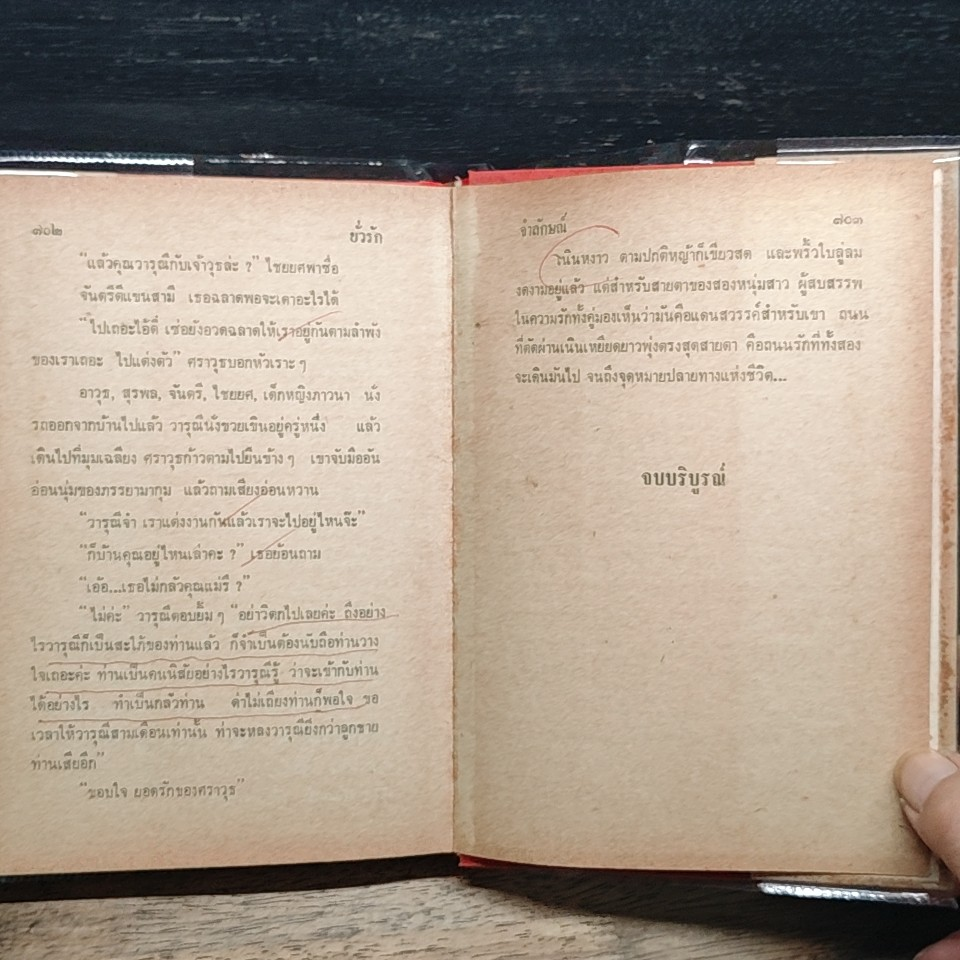 ๗๐๒ ยั่วรัก
"แล้วคุณวารุณีกับเจ้าวุธล่ะ ?" ไชยยศพาซื่อ
จันตรีตีแขนสามี เธอฉลาดพอจะเดาอะไรได้
"ไปเถอะไอ้ตี๋ เซ่อยังอวดฉลาดให้เราอยู่กันตามลำพัง
ของเราเถอะ ไปแต่งตัว" ศราวุธบอกหัวเราะ ๆ
อาวุธ, สุรพล, จันตรี, ไชยยศ, เด็กหญิงภาวนา นั่ง
รถออกจากบ้านไปแล้ว วารุณีนั่งขวยเขินอยู่ครู่หนึ่ง แล้ว
เดินไปที่มุมเฉลียง ศราวุธก้าวตามไปยืนข้าง ๆ เขาจับมืออัน
อ่อนนุ่มของภรรยามากุม แล้วถามเสียงอ่อนหวาน
"วารุณีจ๋า เราแต่งงานกันแล้วเราจะไปอยู่ไหนจ๊ะ"
"ก็บ้านคุณอยู่ไหนเล่าคะ ?" เธอย้อนถาม
"เอ้อ...เธอไม่กลัวคุณแม่รึ ?"
"ไม่ค่ะ" วารุณีตอบยิ้ม ๆ "อย่าวิตกไปเลยค่ะ ถึงอย่าง
ไรวารุณีก็เป็นสะใภ้ของท่านแล้ว ก็จำเป็นต้องนับถือท่านวาง
ใจเถอะค่ะ ท่านเป็นคนนิสัยอย่างไรวารุณีรู้ ว่าจะเข้ากับท่าน
ได้อย่างไร ทำเป็นกลัวท่าน ด่าไม่เถียงท่านก็พอใจ ขอ
เวลาให้วารุณีสามเดือนเท่านั้น ท่าจะหลงวารุณียิ่งกว่าลูกชาย
ท่านเสียอีก"
"ขอบใจ ยอดรักของศราวุธ"
จำลักษณ์ ๗๐๓
เนินหงาว ตามปกติหญ้าก็เขียวสด และพริ้วใบลู่ลม
งดงามอยู่แล้ว แต่สำหรับสายตาของสองหนุ่มสาว ผู้สบสรรพ
ในความรักทั้งคู่มองเห็นว่ามันคือแดนสวรรค์สำหรับเขา ถนน
ที่ตัดผ่านเนินเหยียดยาวพุ่งตรงสุดสายตา คือถนนรักที่ทั้งสอง
จะเดินมันไป จนถึงจุดหมายปลายทางแห่งชีวิต...
จบบริบูรณ์